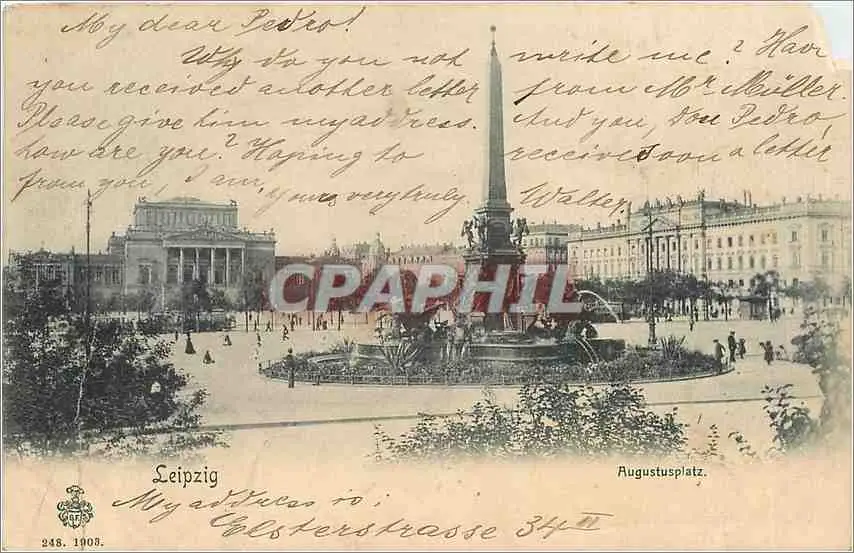 My dear Pedro!
Why do you not write me? Have
you received another letter from Mr. Möller.
Please give him my address. And you, Don Pedro,
how are you? Hoping to received soon a letter
from you, I am, yours very truly. Walter.
CPAPHIL
Leipzig
Augustusplatz.
My address is:
Elsterstrasse 34 III
248. 1903.